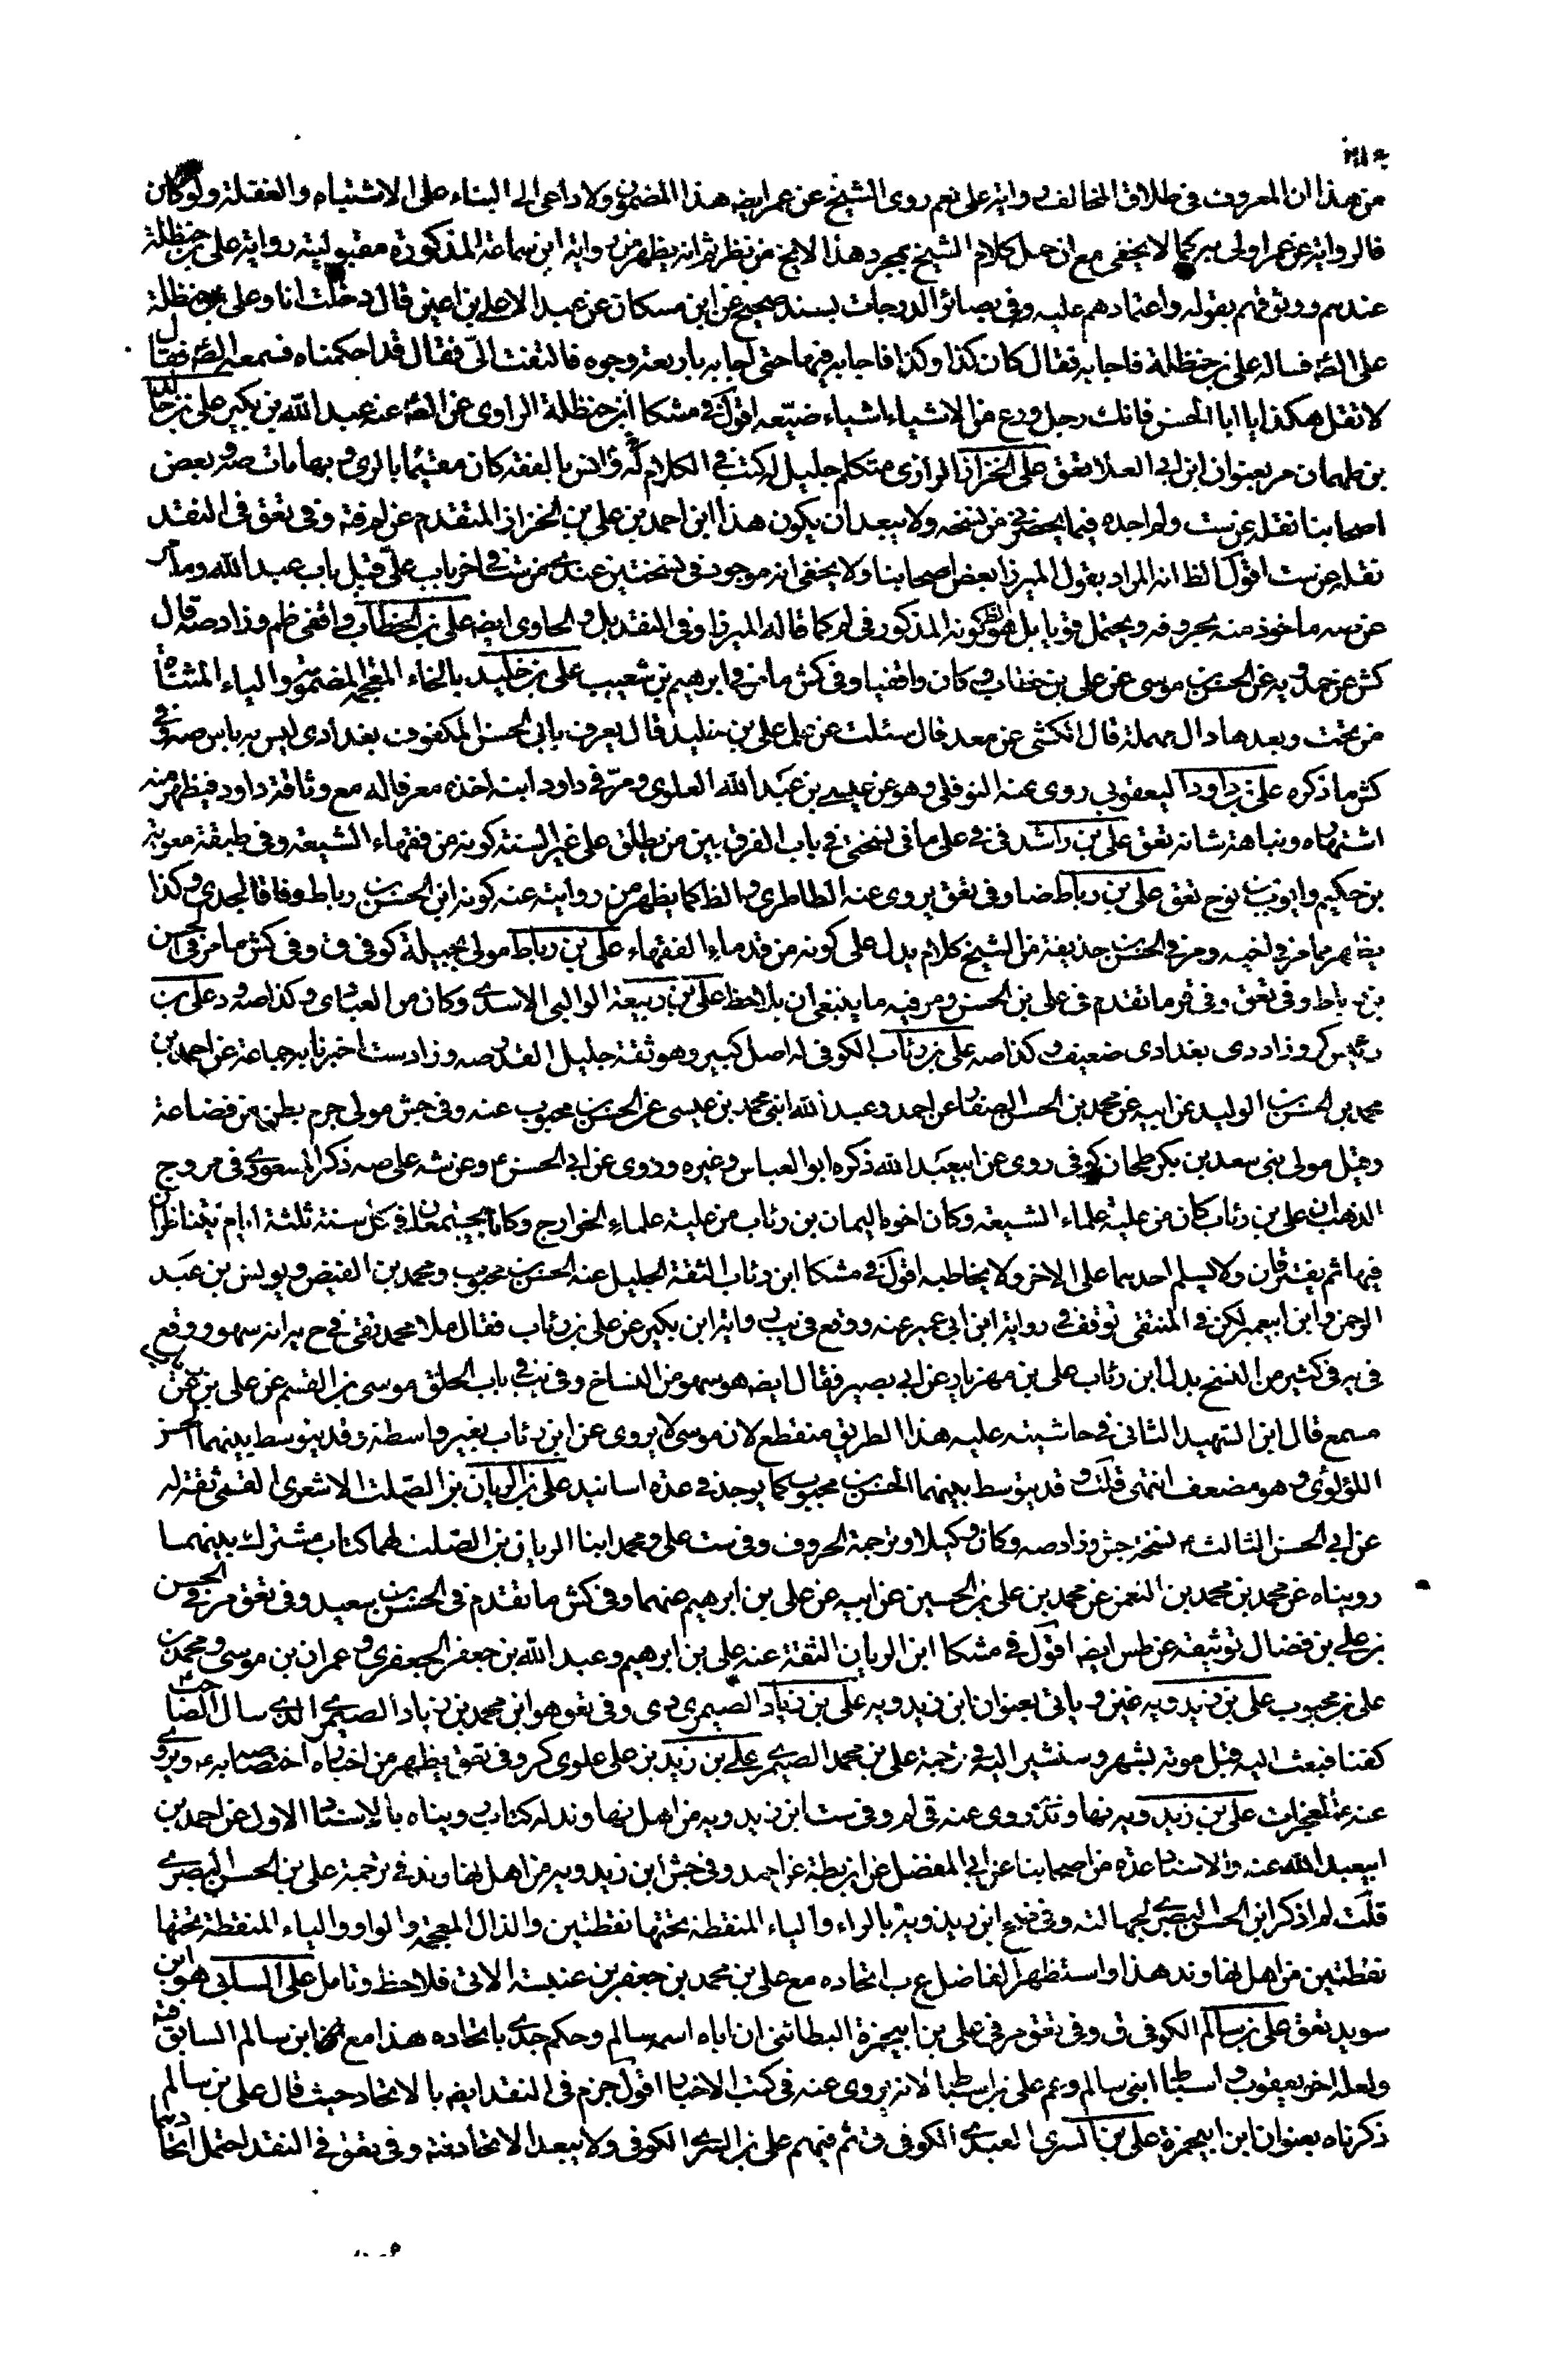 من هذا ان المعروف فى طلاق المخالف رواية على نعم روى الشيخ عن عمر ايضه هذا المضمون ولا داعى الى البناء على الاشتباه والغفلة ولو كان
فالرواية عن عمر اولى به كما لا يخفى مع ان حمل كلام الشيخ بمجرد هذا لا يخ من نظر ثم انه يظهر من رواية ابن سماعة المذكورة مقبولية رواية على بن حنظلة
عندهم ووثوقهم بقوله واعتمادهم عليه وفى بصائر الدرجات بسند صحيح عن ابن مسكان عن عبد الاعلى بن اعين قال دخلت انا وعلى بن حنظلة
على الصه فساله على بن حنظلة فاجابه فقال كان كذا وكذا فاجابه فيها حتى اجابه باربعة وجوه فالتفت الىّ فقال قد احكمناه فسمعه الصه فقال
لا تقل هكذا يا ابا الحسن فانك رجل ورع من الاشياء اشياء ضيّقه اقول فى مشكا ابن حنظلة الراوى عن الصه عنه عبد الله بن بكير على بن خالد
بن طهمان مر بعنوان ابن ابى العلا تعق على الخزاز الرازى متكلم جليل له كتب فى الكلام وله انس بالفقه كان مقيما بالرى وبها مات صه وبعض
اصحابنا نقله عن ست ولم اجده فيما يحضرنى من نسخه ولا يبعد ان يكون هذا ابن احمد بن على بن الخزاز المتقدم عن لم فته وفى تعق فى النقد
نقله عن ست اقول الظ انه المراد بقول الميرزا بعض اصحابنا ولا يخفى انه موجود فى نسختين عندى من ست فى اخر باب على قبل باب عبد الله وما مر
عن صه ماخوذ منه بحروفه ويحتمل قويا بل هو الظ كونه المذكور فى لم كما قاله الميرزا وفى النقد بل والحاوى ايضه على بن الخطاب واقفى ظم وزاد صه قال
كش عن حمدويه عن الحسن بن موسى عن على بن خطاب وكان واقفيا وفى كش ما مر فى ابرهيم بن شعيب على بن خليد بالخاء المعجمة المضمومة والياء المثناة
من تحت وبعدها دال مهملة قال الكشى عن معد قال سئلت عن على بن خليد قال يعرف بابى الحسن المكفوف بغدادى ليس به باس صه وفى
كش ما ذكره على بن داود اليعقوبى روى عنه النوفلى وهو عن عيسى بن عبد الله العلوى ومرّ فى داود ابنه اخذه معرفا له مع وثاقة داود فيظهر منه
اشتهاره ونباهة شانه تعق على بن راشد فى فى على ما فى نسختى فى باب الفرق بين من طلق على غير السنة كونه من فقهاء الشيعة وفى طبقة معوية
بن حكيم وايوب بن نوح تعق على بن رباط ضا وفى تعق يروى عنه الطاطرى والظ كما يظهر من روايته عنه كونه ابن الحسن بن رباط وفاقا لجدى وكذا
يظهر مما مر فى اخيه ومر فى الحسن بن حذيفة من الشيخ كلام يدل على كونه من قدماء الفقهاء على بن رباط مولى بجيلة كوفى ق وفى كش ما مر فى الحسن
بن رباط وفى تعق وفى قر ما تقدم فى على بن الحسن ومر فيه ما ينبغى ان يلاحظ على بن ربيعة الوالبى الاسدى وكان من العباى وكذا صه ود على بن
رميس كر وزاد دى بغدادى ضعيف وكذا صه على بن رئاب الكوفى له اصل كبير وهو ثقة جليل القدر صه وزاد ست اخبرنا به جماعة عن احمد بن
محمد بن الحسن بن الوليد عن ابيه عن محمد بن الحسن الصفار عن احمد وعبد الله ابنى محمد بن عيسى عن الحسن بن محبوب عنه وفى جش مولى جرم بطن من قضاعة
وقيل مولى بنى سعد بن بكر طحان كوفى روى عن ابيعبد الله ذكره ابو العباس وغيره وروى عن ابى الحسن ع وعن شه على صه ذكر المسعودى فى مروج
الذهب ان على بن رئاب كان من علية علماء الشيعة وكان اخوه اليمان بن رئاب من علية علماء الخوارج وكانا يجتمعان فى كل سنة ثلثة ايام يتناظران
فيها ثم يفترقان ولا يسلم احدهما على الاخر ولا يخاطبه اقول فى مشكا ابن رئاب الثقة الجليل عنه الحسن بن محبوب ومحمد بن الفيض ويونس بن عبد
الرحمن وابن ابيعمير لكن فى المنتقى توقف فى رواية ابن ابى عمير عنه ووقع فى يب رواية ابن بكير عن على بن رئاب فقال ملا محمد تقى فى ح يه انه سهو ووقع
فى يه فى كثير من النسخ بدل ابن رئاب على بن مهزيار عن ابى بصير فقال ايضه هو سهو من النساخ وفى يب فى باب الحلق موسى بن القسم عن على بن رئاب عن
مسمع قال ابن الشهيد الثانى فى حاشيته عليه هذا الطريق منقطع لان موسى لا يروى عن ابن رئاب بغير واسطة وقد يتوسط بينهما الحسن
اللؤلؤى وهو مضعف انتهى قلت وقد يتوسط بينهما الحسن بن محبوب كما يوجد فى عدة اسانيد على بن الريان بن الصلت الاشعرى القمى ثقة له
عن ابى الحسن الثالث ع نسخة جش وزاد صه وكان وكيلا وترجمة الحروف وفى ست على ومحمد ابنا الريان بن الصلت لهما كتاب مشترك بينهما
رويناه عن محمد بن محمد بن النعمن عن محمد بن على بن الحسين عن ابيه عن على بن ابرهيم عنهما وفى كش ما تقدم فى الحسن بن سعيد وفى تعق مر فى الحسن
بن على بن فضال توثيقه عن طس ايضه اقول فى مشكا ابن الريان الثقة عنه على بن ابرهيم وعبد الله بن جعفر الحميرى وعمران بن موسى ومحمد بن
على بن محبوب على بن زيدويه غنز وياتى بعنوان ابن زيدويه على بن زياد الصيمرى دى وفى تعق هو ابن محمد بن زياد الصيمرى الذى سال الصاحب
كفنا فبعث اليه قبل موته بشهر وسنشير اليه فى ترجمة على بن محمد الصيمرى على بن زيد بن على علوى كر وفى تعق يظهر من اخباره اختصاصه به ع ويروى
عنه ع المعجزات على بن زيدويه نهاوندى روى عنه قى لم وفى ست ابن زيدويه من اهل نهاوند له كتاب رويناه بالاسناد الاول عن احمد بن
ابيعبد الله عنه والاسناد عدة من اصحابنا عن ابى المفضل عن ابن بطة عن احمد وفى جش ابن زيدويه من اهل نهاوند فى ترجمة على بن الحسن البصرى
قلت لم اذكر ابن الحسن البصرى لجهالته وفى ضح ابن ريذويه بالراء والياء المنقطة تحتها نقطتين والذال المعجمة والواو والياء المنقطة تحتها
نقطتين من اهل نهاوند هذا واستظهر الفاضل ع ب اتحاده مع على بن محمد بن جعفر بن عنبسة الاتى فلاحظ وتامل على السابى هو ابن
سويد تعق على بن سالم الكوفى ق وفى تعق مر فى على بن ابيحمزة البطائنى ان اباه اسمه سالم وحكم جدى باتحاده هذا مع ابن سالم السابق فيه
ولعله اخو يعقوب واسباط ابنى سالم وعم على بن اسباط لانه يروى عنه فى كتب الاخبار اقول جزم فى النقد ايضه بالاتحاد حيث قال على بن سالم
ذكرناه بعنوان ابن ابيحمزة على بن السرى العبدى الكوفى ق ثم فيهم على بن السرى الكوفى ولا يبعد الاتحاد فته وفى تعق فى النقد احتمل اتحادهما